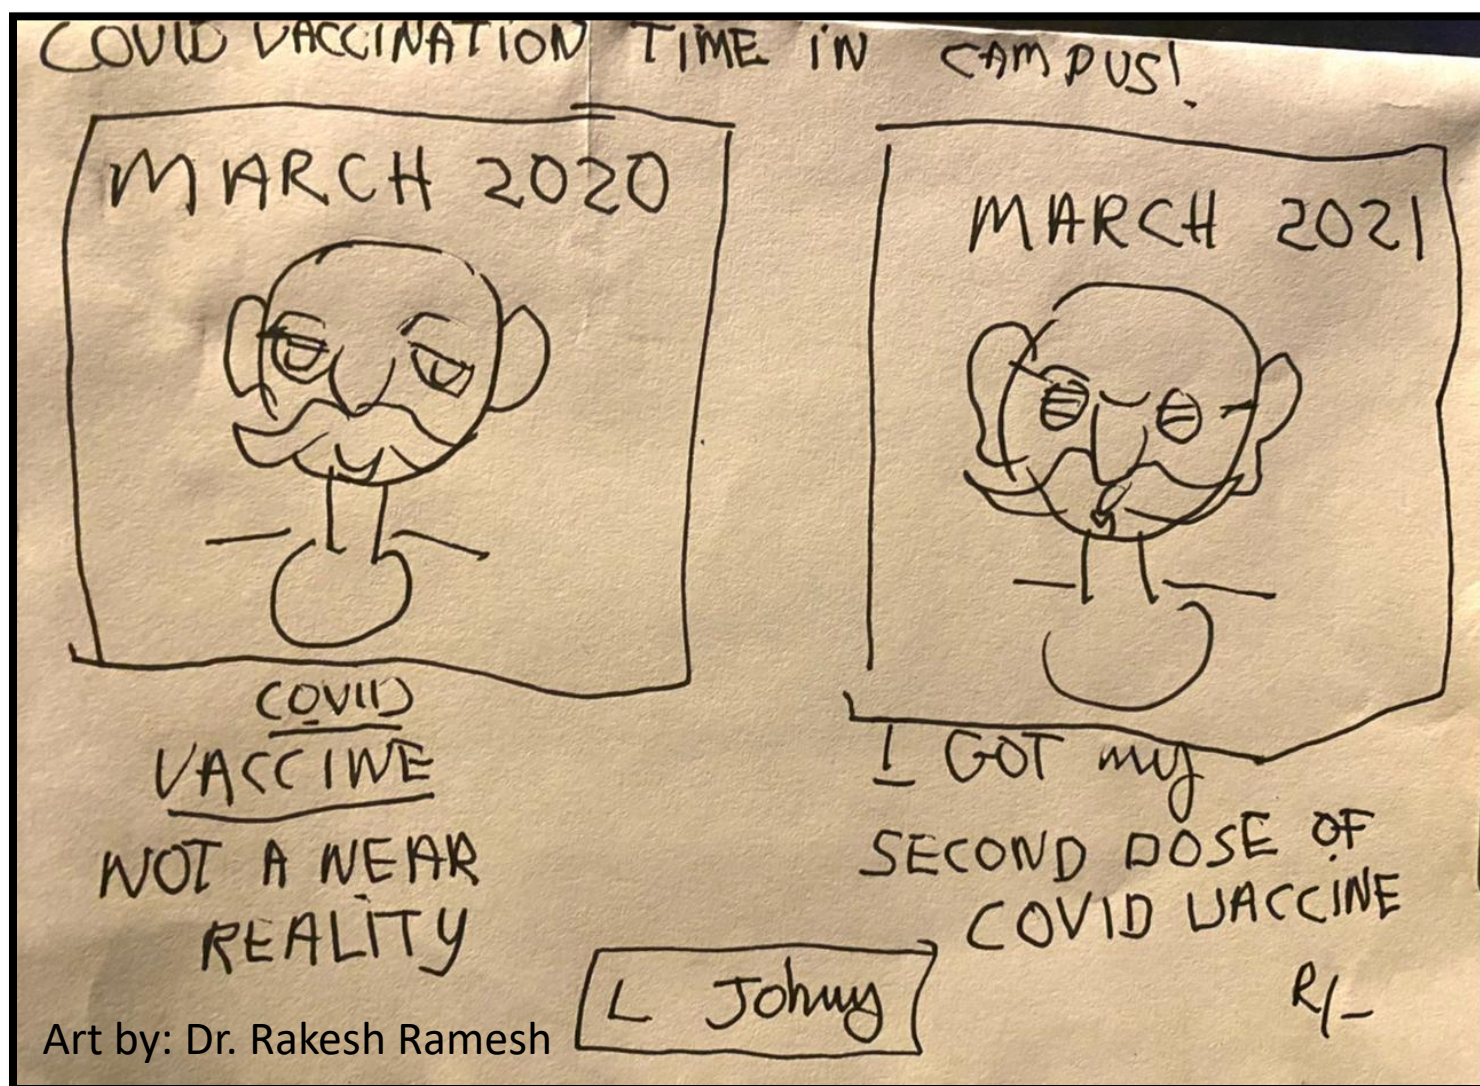 COVID VACCINATION TIME IN CAMPUS!
MARCH 2020
COVID
VACCINE
NOT A NEAR
REALITY
MARCH 2021
I GOT my
SECOND DOSE OF
COVID VACCINE
R/_
L Johny
Art by: Dr. Rakesh Ramesh